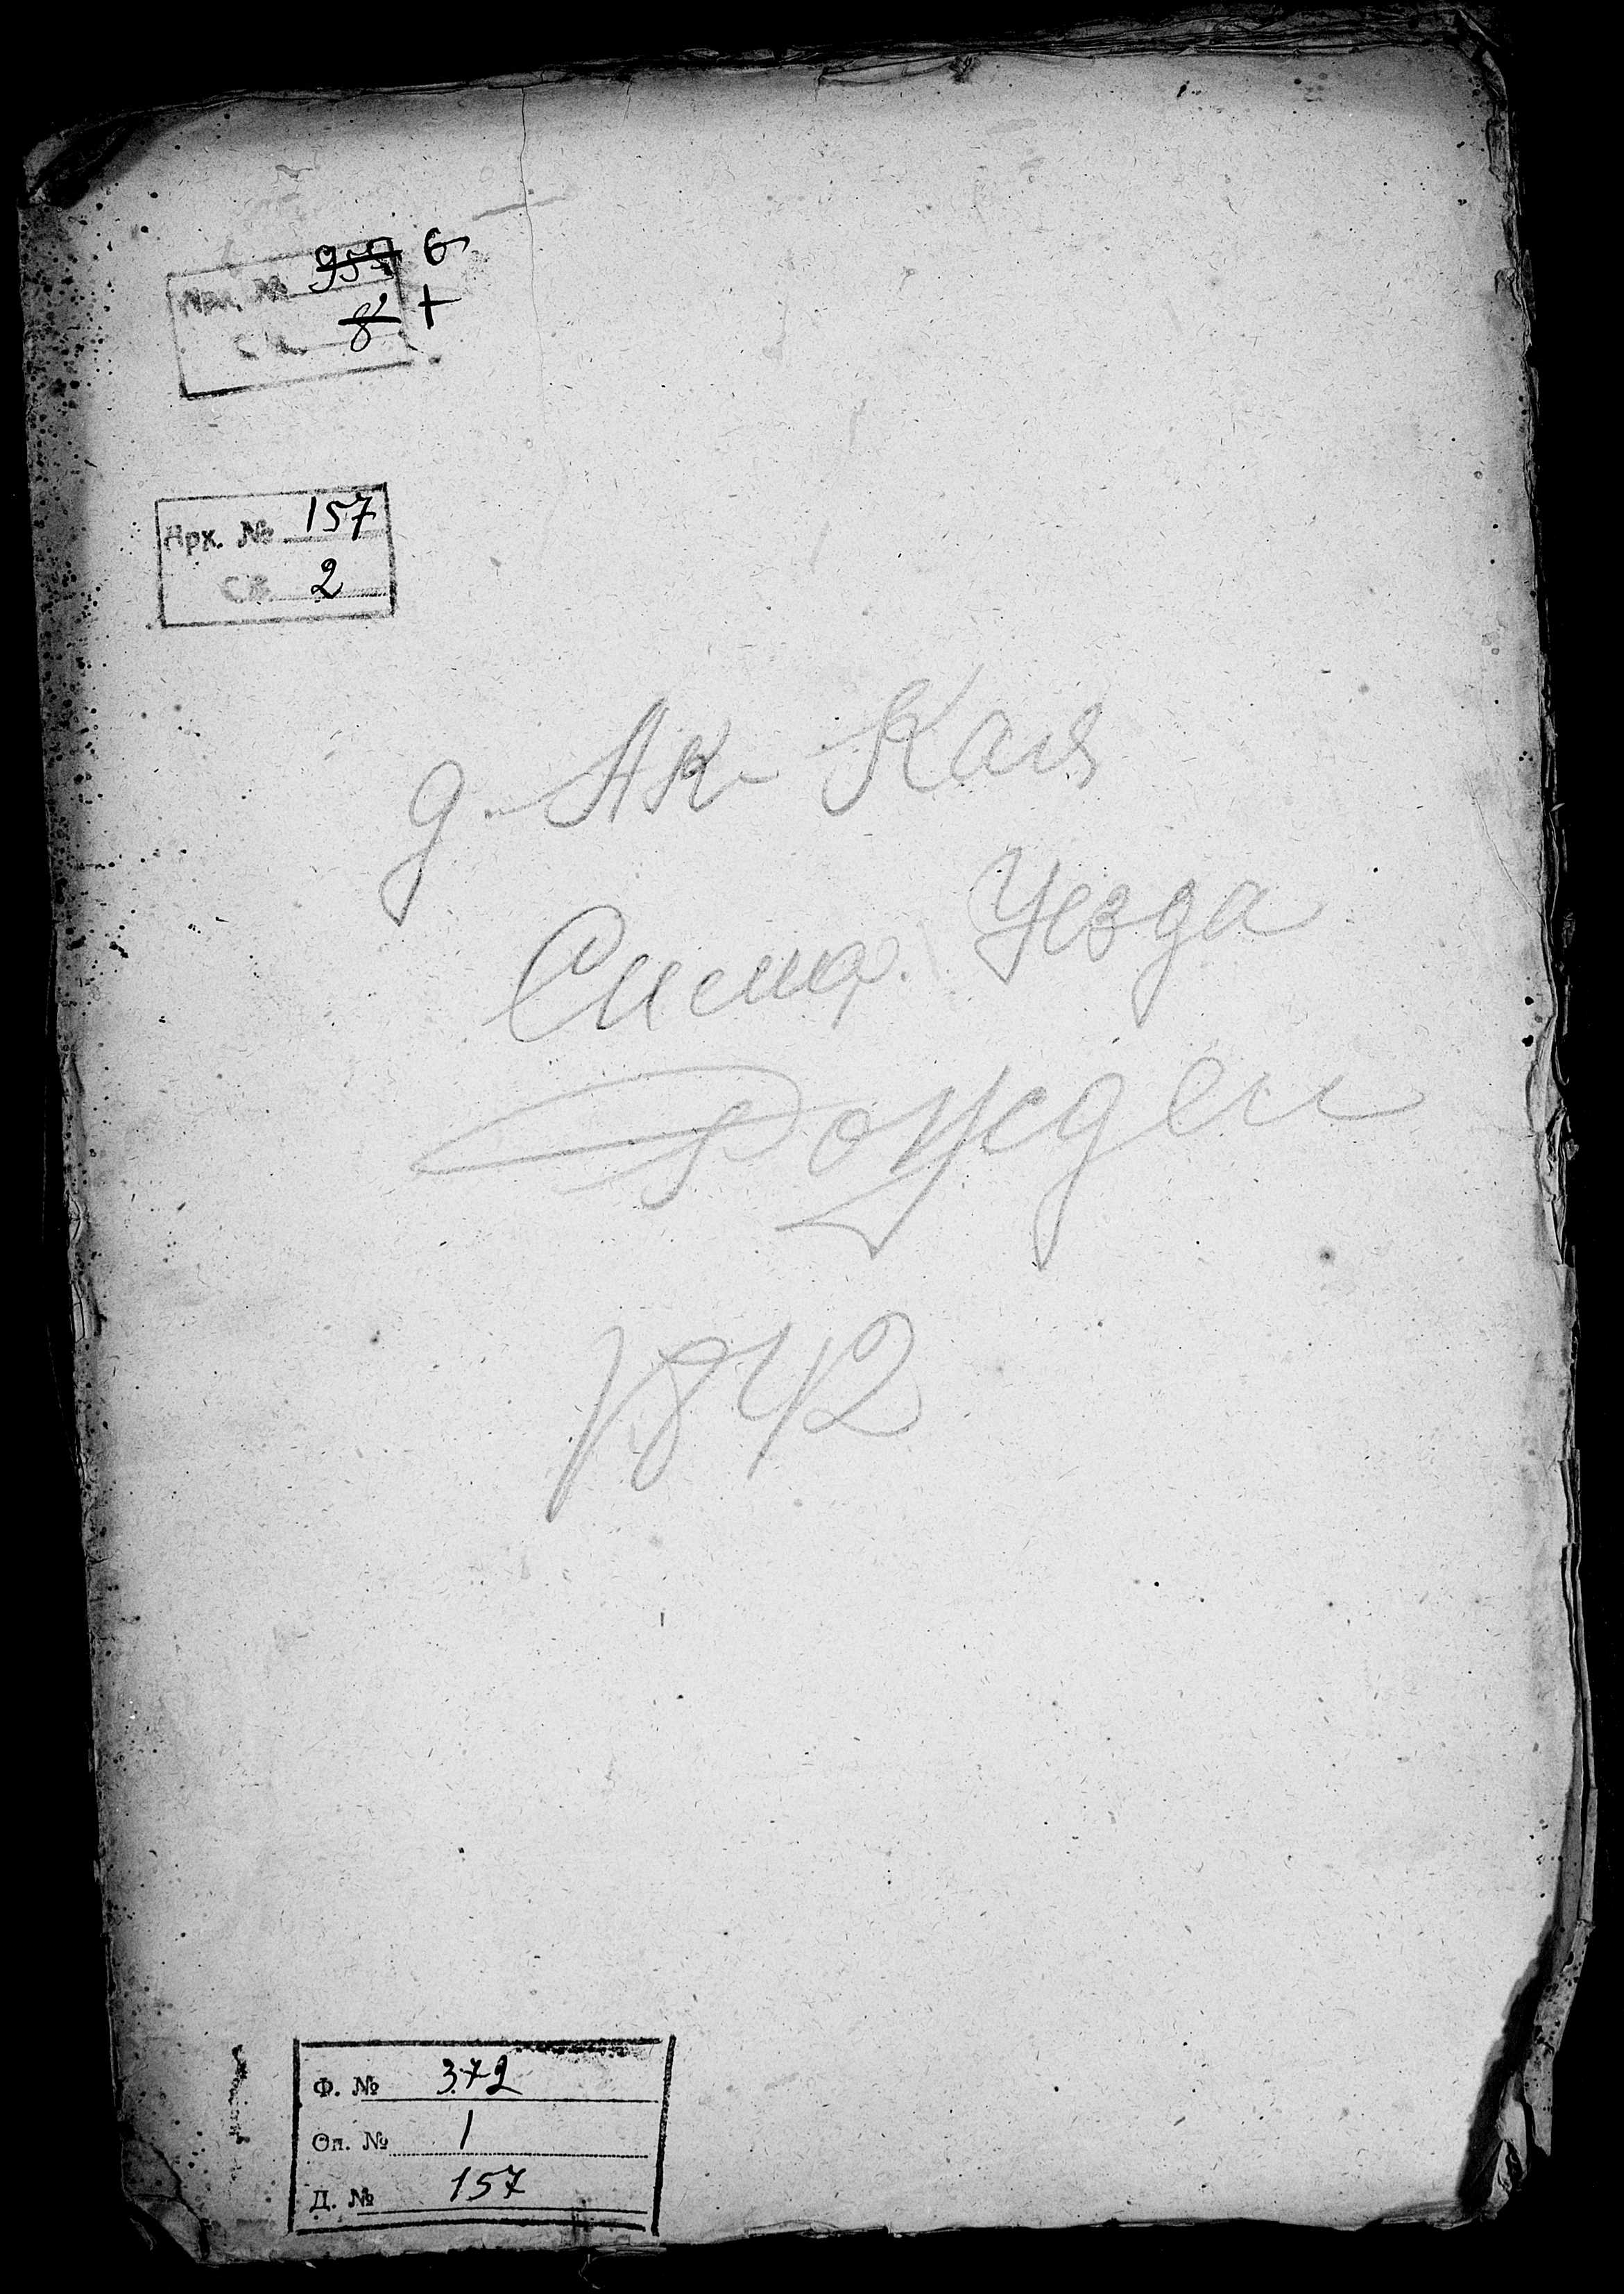 Арх. № 957 6
Св. 8 +
Арх. № 157
Св. 2
д. Ак-Кая
Симф. Уезда
Рожден
1842
Ф. № 372
Оп. № 1
Д. № 157